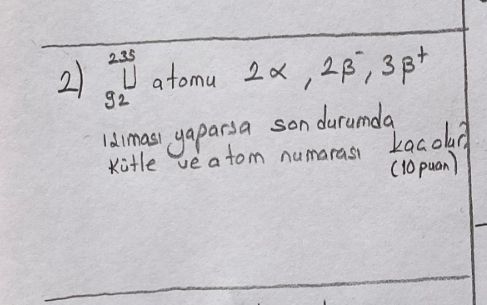 2) ²³⁵₉₂U atomu 2α, 2β⁻, 3β⁺
ışıması yaparsa son durumda
kütle ve atom numarası kaç olur?
(10 puan)